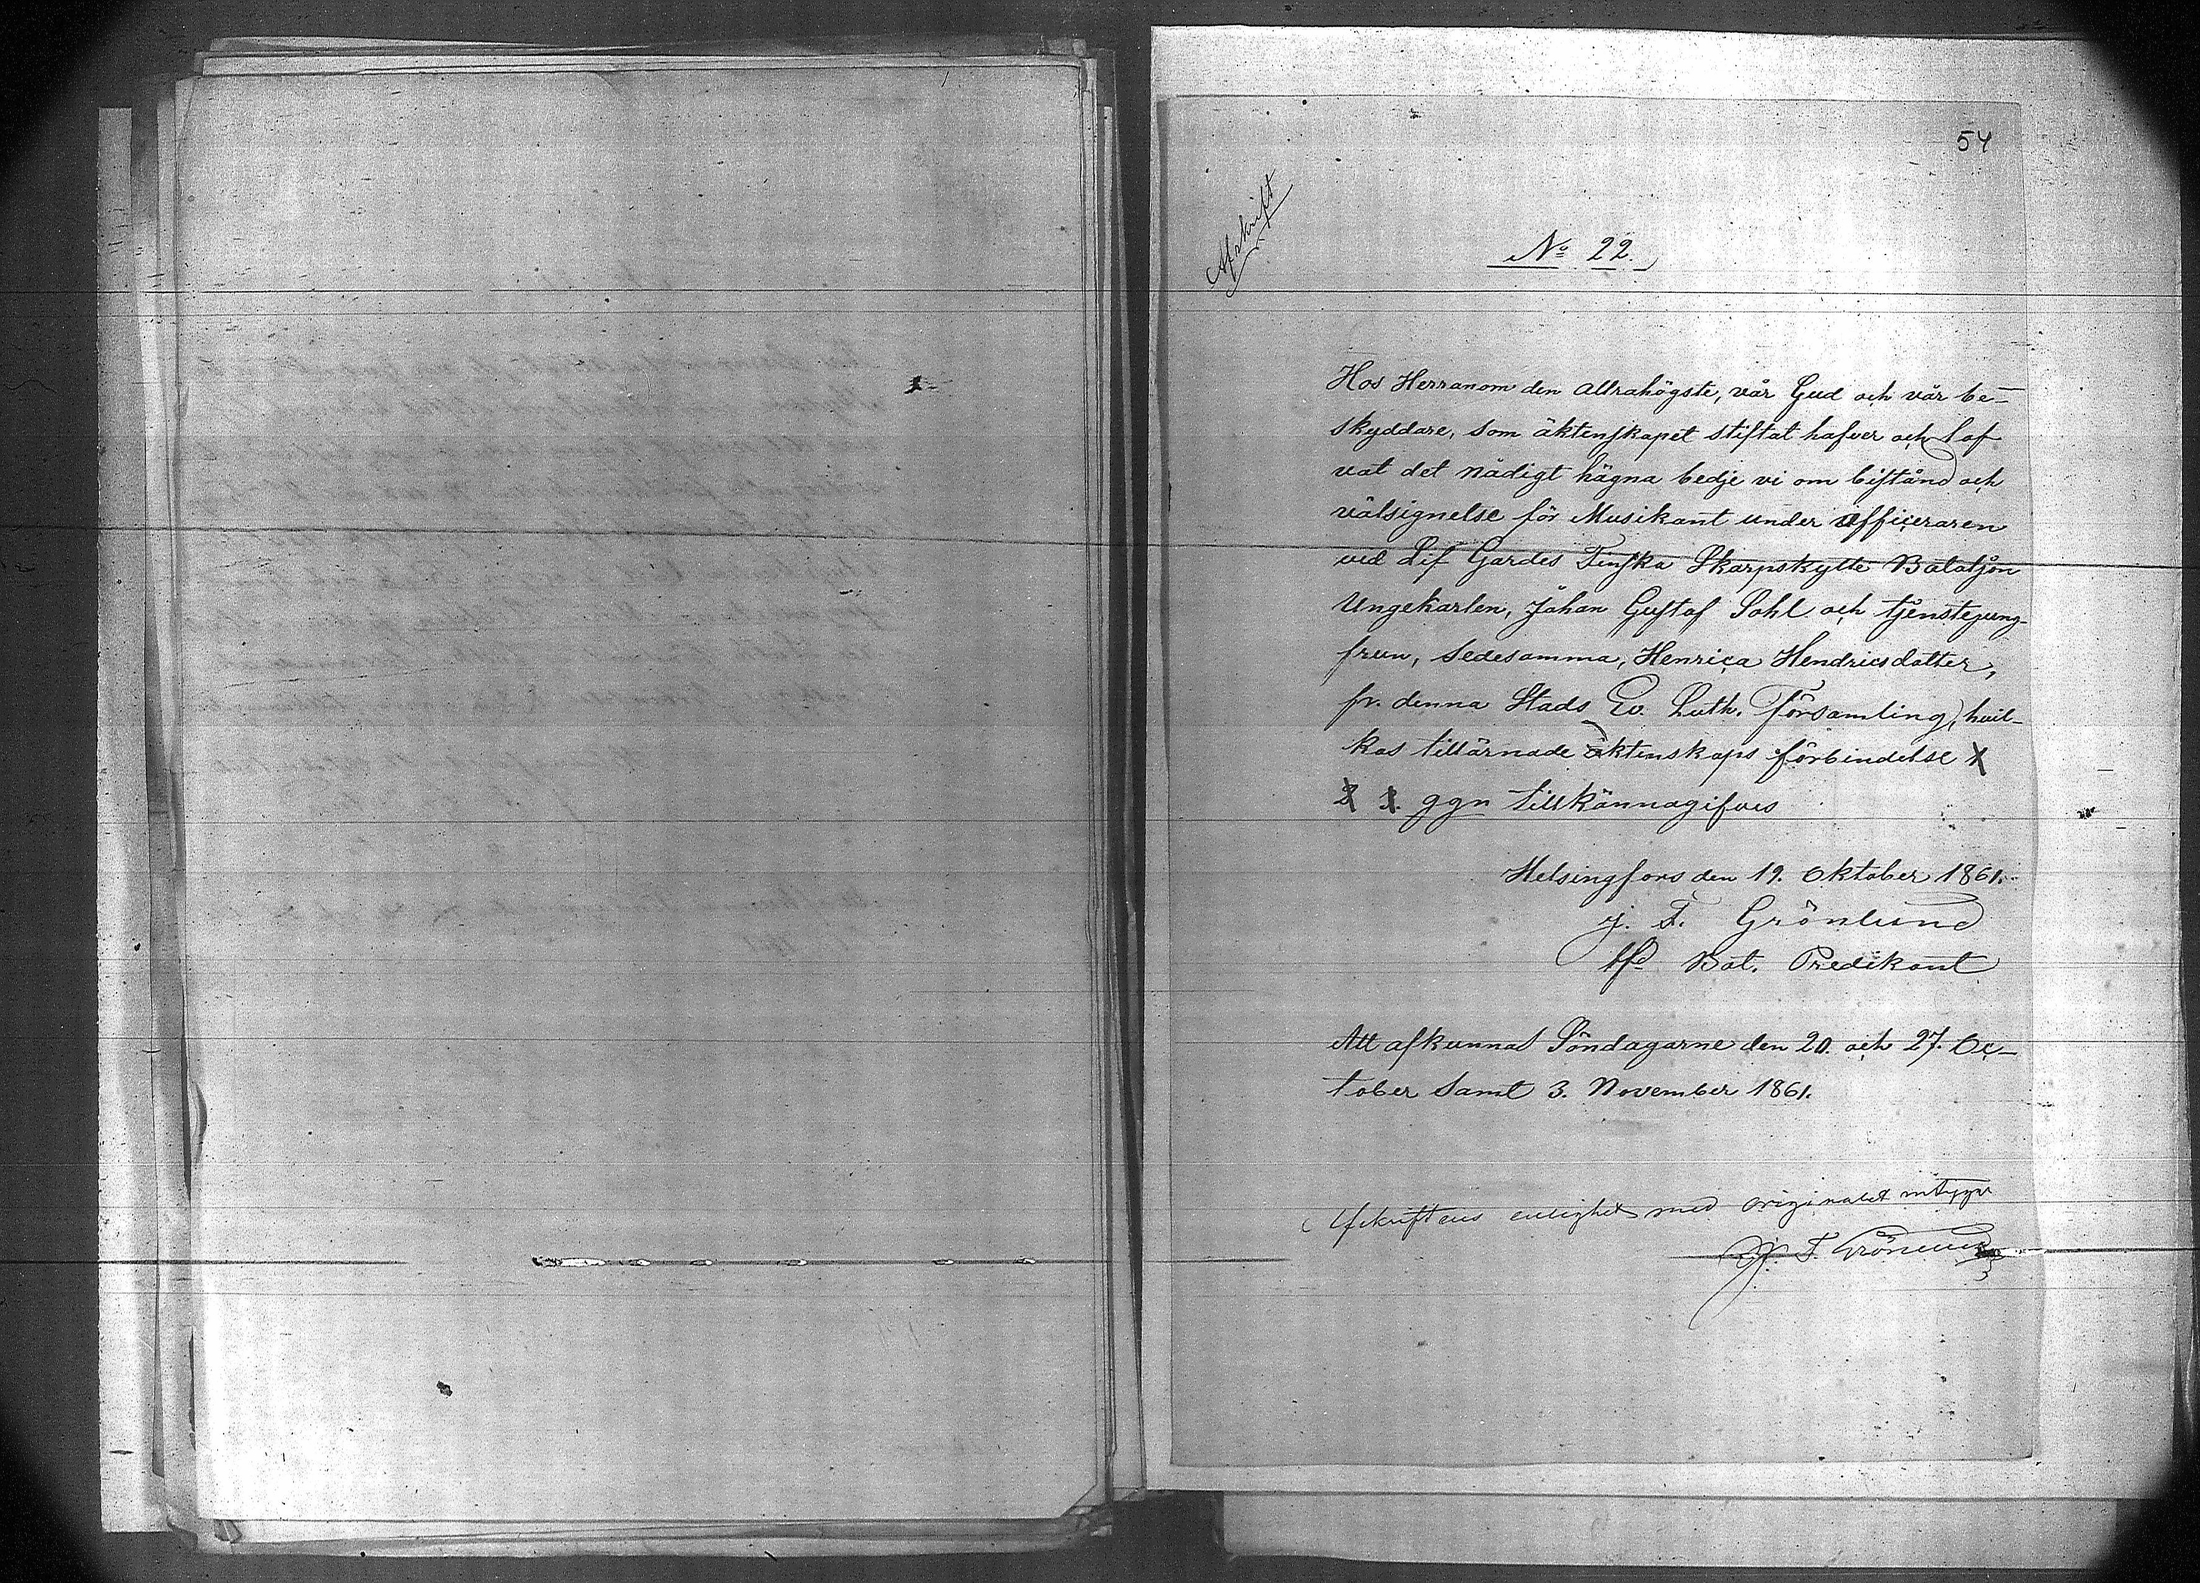 54
Afskrift
No 22.
Hos Herranom den allrahögste, vår Gud och vår be-
skyddare, som äktenskapet stiftat hafver och lof
vat det nådigt hägna bedje vi om bistånd och
välsignelse för Musikant under officeraren
vid Lif Gardes Finska Skarpskytte Bataljon
Ungekarlen, Johan Gustaf Sohl och tjenstejung-
frun, Sedesamma, Henrica Hendricsdotter,
fr. denna Stads Ev. Luth. Församling, hvil-
kas tillärnade äktenskaps förbindelse 1
2 3. ggn tillkännagifves
Helsingfors den 19. Oktober 1861.
J. F. Grönlund
Bat. Predikant
Att afkunnas Söndagarne den 20. och 27. Oc-
tober samt 3. November 1861.
Afskriftens enlighet med originalet intygar
J. F. Grönlund